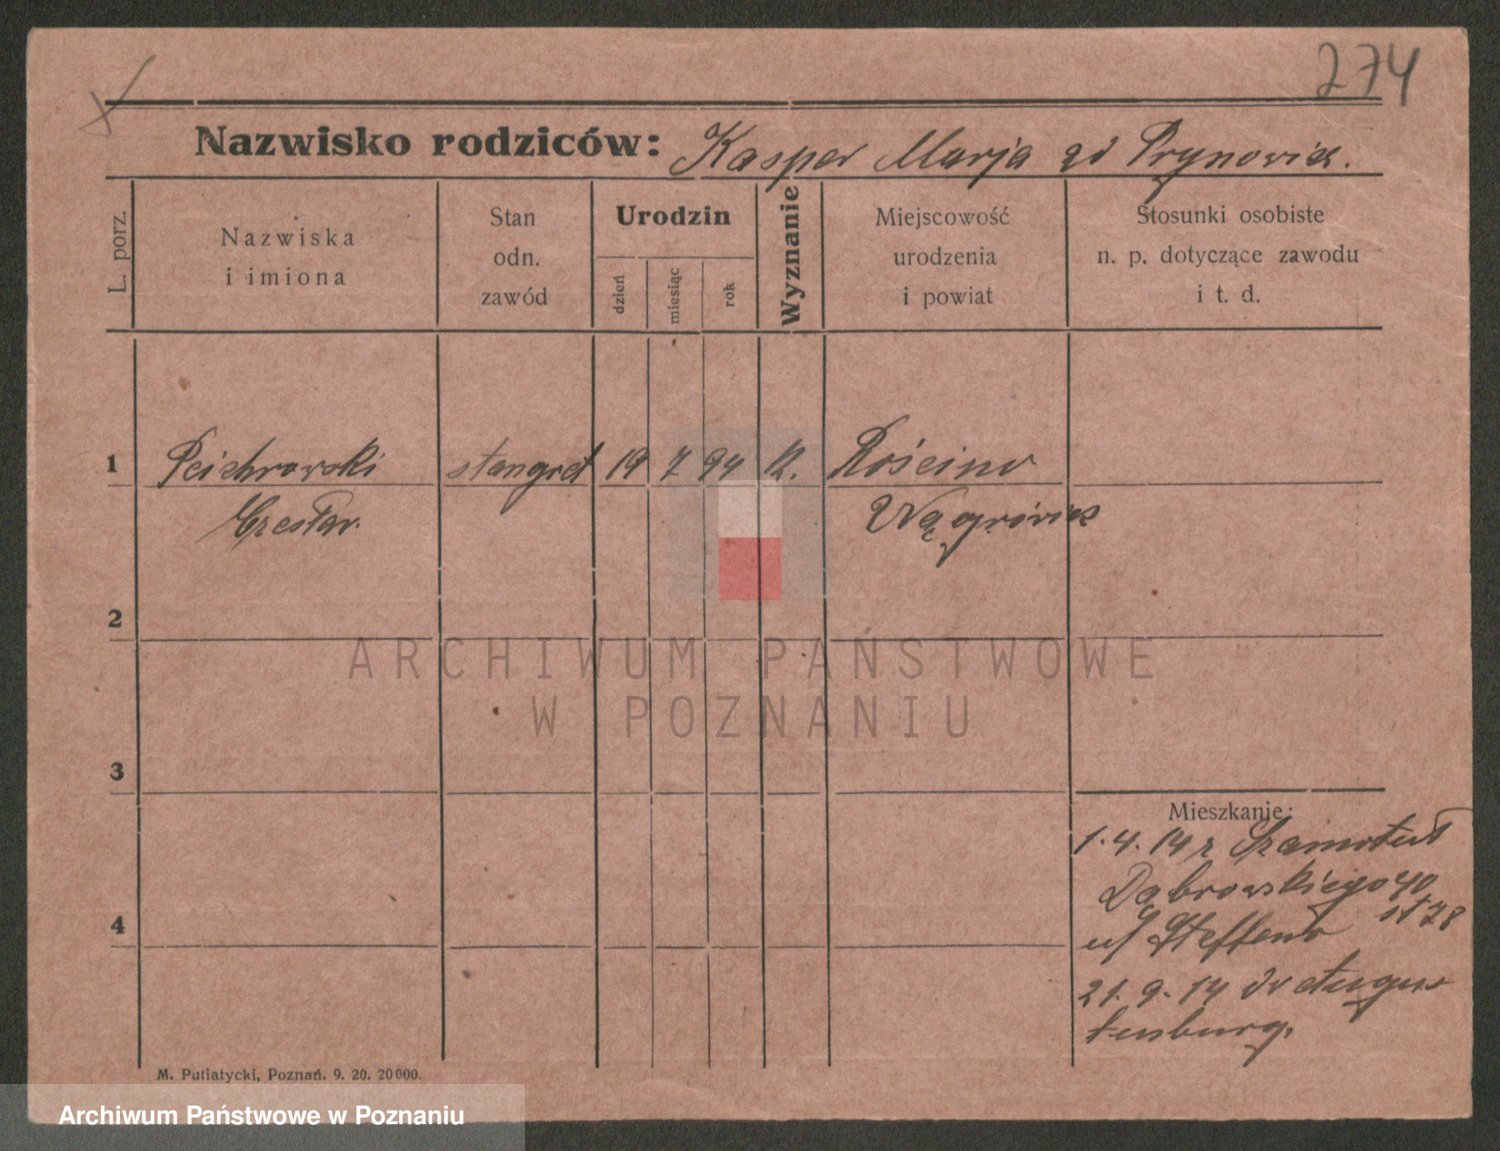 274
Nazwisko rodziców: Kasper Marja zd
L. porz.
Nazwiska
i imiona
Stan
odn.
zawód
Urodzin
dzień
miesiąc
rok
Wyznanie
Miejscowość
urodzenia
i powiat
Stosunki osobiste
n. p. dotyczące zawodu
i t. d.
1 stangret 19 7 94 K.
Czesław. Wągrówiec
2
ARCHIWUM PAŃSTWOWE
W POZNANIU
3
4
Mieszkanie:
1.4.14 z
Dąbrowskiego 40
st 28
21.9.14 do Augus
tenburg.
M. Putiatycki, Poznań. 9. 20. 20000.
Archiwum Państwowe w Poznaniu